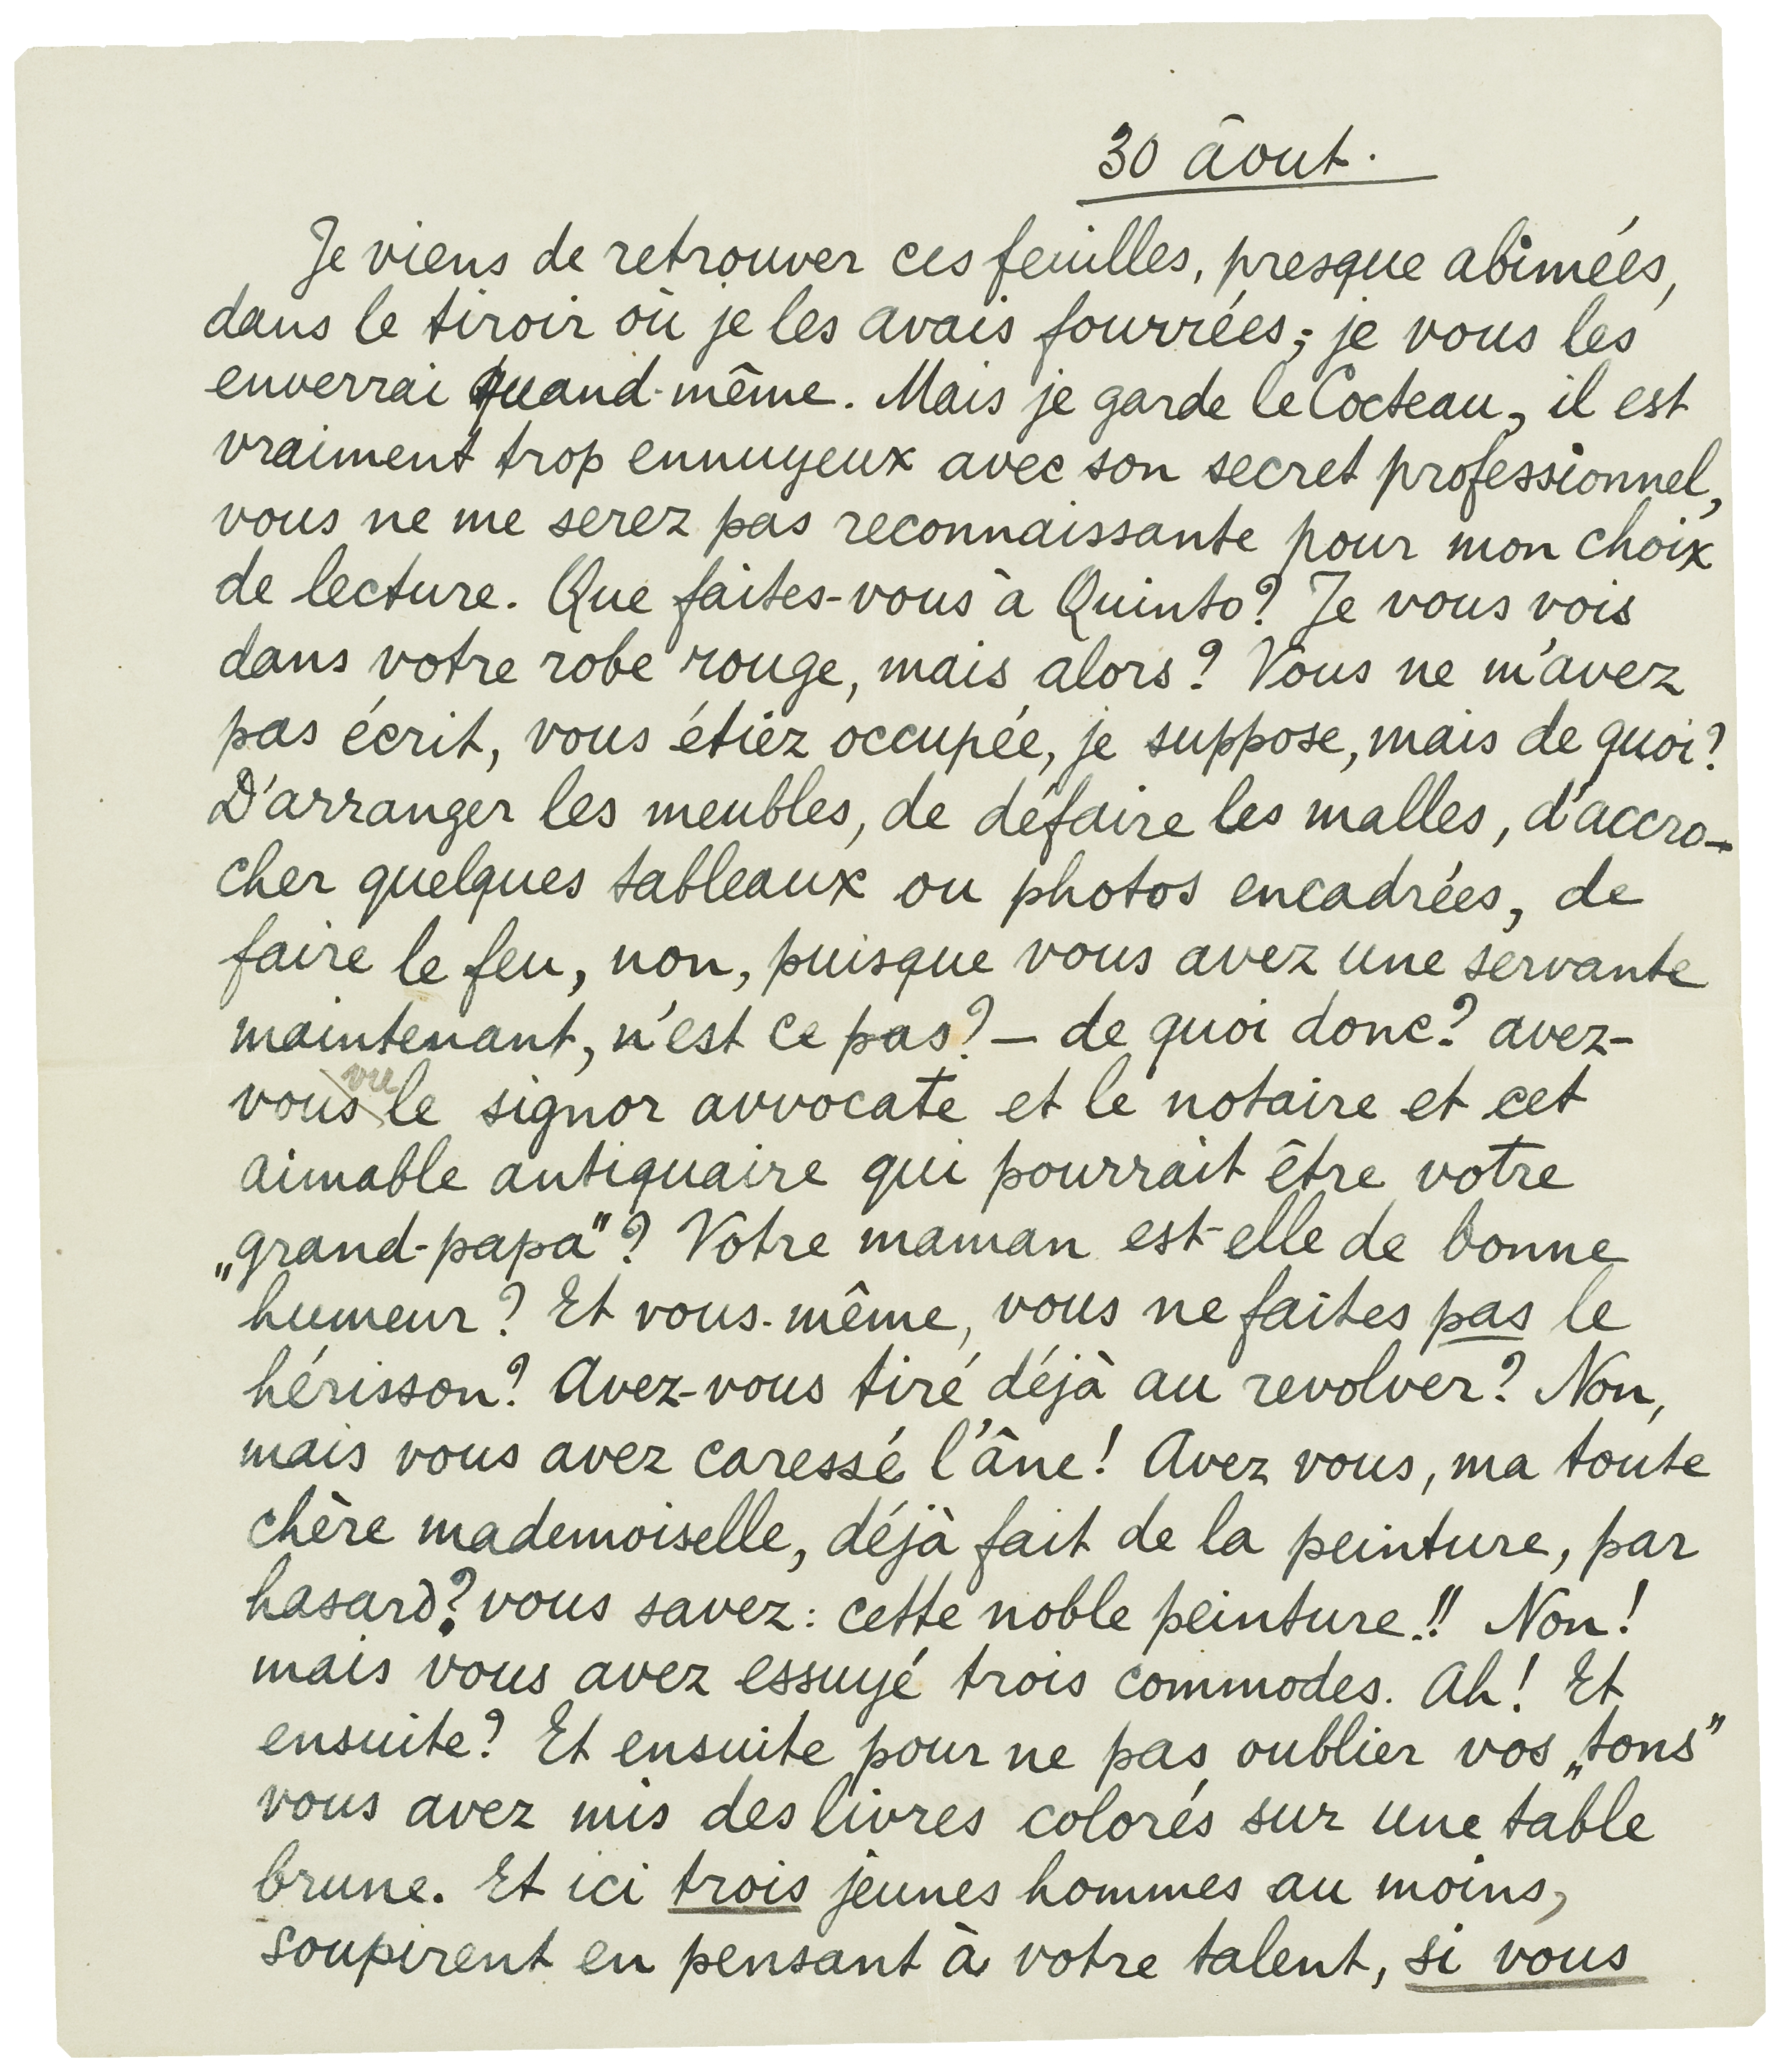 30 âout.
Je viens de retrouver ces feuilles, presque abimées,
dans le tiroir où je les avais fourrées; je vous les
enverrai quand-même. Mais je garde le Cocteau, il est
vraiment trop ennuyeux avec son secret professionnel,
vous ne me serez pas reconnaissante pour mon choix
de lecture. Que faites-vous à Quinto? Je vous vois
dans votre robe rouge, mais alors? Vous ne m'avez
pas écrit, vous étiez occupée, je suppose, mais de quoi?
D'arranger les meubles, de défaire les malles, d'accro-
cher quelques tableaux ou photos encadrées, de
faire le feu, non, puisque vous avez une servante
maintenant, n'est ce pas? — de quoi donc? avez-
vous vu le signor avvocate et le notaire et cet
aimable antiquaire qui pourrait être votre
„grand-papa"? Votre maman est-elle de bonne
humeur? Et vous-même, vous ne faites pas le
hérisson? Avez-vous tiré déjà au revolver? Non,
mais vous avez caressé l'âne! Avez vous, ma toute
chère mademoiselle, déjà fait de la peinture, par
hasard? vous savez: cette noble peinture!! Non!
mais vous avez essuyé trois commodes. Ah! Et
ensuite? Et ensuite pour ne pas oublier vos „tons"
vous avez mis des livres colorés sur une table
brune. Et ici trois jeunes hommes au moins,
soupirent en pensant à votre talent, si vous